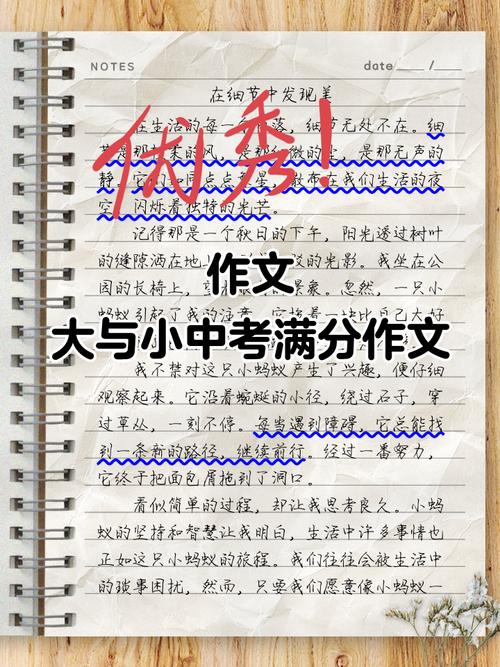 NOTES
date /
在细节中发现美
在生活的每一 落，细节无处不在。细
节是那 柔的风，是那 微的 ，是那无声的
静。它们 同点点 星，散布在我们生活的夜
空，闪烁着独特的光芒。
优秀！
记得那是一个秋日的下午，阳光透过树叶
的缝隙洒在地上 的光影。我坐在公
园的长椅上， 景象。忽然，一只小
作文
蚂蚁引起了我的注意，它 着一块比自己大好
大与小中考满分作文
我不禁对这只小蚂蚁产生了兴趣，便仔细
观察起来。它沿着蜿蜒的小径，绕过石子，穿
过草丛，一刻不停。每当遇到障碍，它总能找
到一条新的路径，继续前行。经过一番努力，
它终于把面包屑拖到了洞口。
看似简单的过程，却让我思考良久。小蚂
蚁的坚持和智慧让我明白，生活中许多事情也
正如这只小蚂蚁的旅程。我们往往会被生活中
的琐事困扰，然而，只要我们愿意像小蚂蚁一